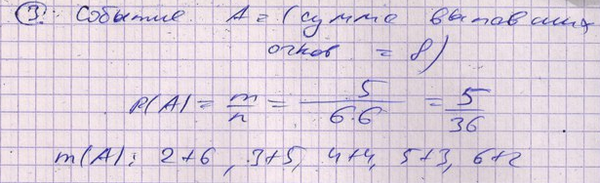 ③: Событие A = (сумма выпавших
очков = 8)
P(A) = m/n = 5/6·6 = 5/36
m(A): 2+6, 3+5, 4+4, 5+3, 6+2